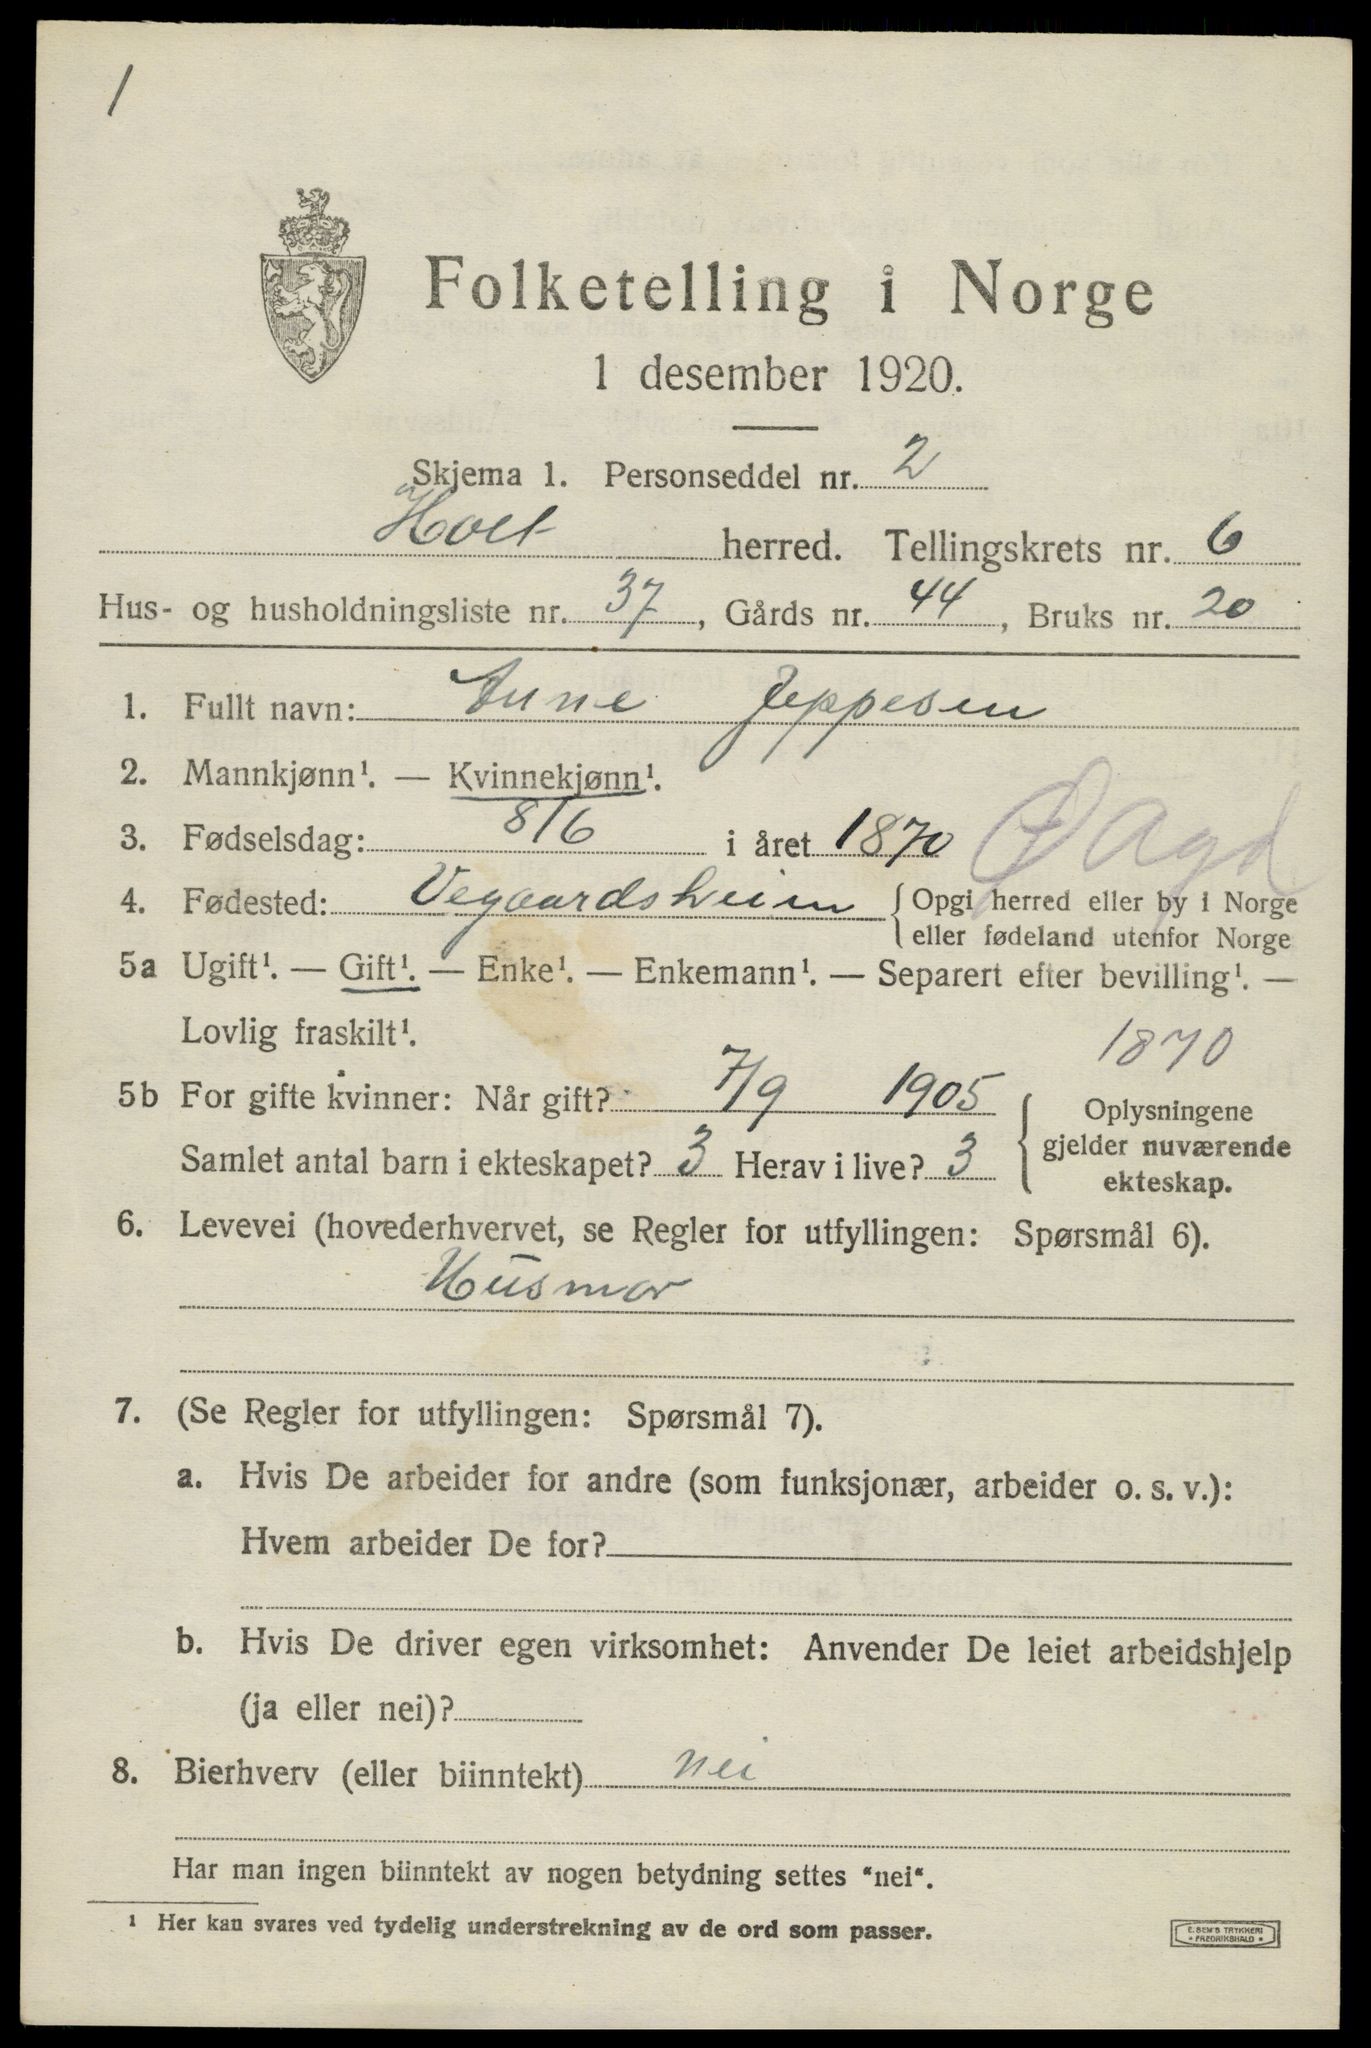 1
Folketelling i Norge
1 desember 1920.
Skjema 1. Personseddel nr. 2
Holt herred. Tellingskrets nr. 6
Hus- og husholdningsliste nr. 37, Gårds nr. 44, Bruks nr. 20
1. Fullt navn: Anne Jeppesen
2. Mannkjønn¹. — Kvinnekjønn¹.
3. Fødselsdag: 8/6 i året 1870
Ø Agd
4. Fødested: Vegaardsheim { Opgi herred eller by i Norge
eller fødeland utenfor Norge
5a Ugift¹. — Gift¹. — Enke¹. — Enkemann¹. — Separert efter bevilling¹. —
Lovlig fraskilt¹.
1870
5b For gifte kvinner: Når gift? 7/9 1905
Samlet antal barn i ekteskapet? 3 Herav i live? 3
{ Oplysningene
gjelder nuværende
ekteskap.
6. Levevei (hovederhvervet, se Regler for utfyllingen: Spørsmål 6).
Husmor
7. (Se Regler for utfyllingen: Spørsmål 7).
a. Hvis De arbeider for andre (som funksjonær, arbeider o. s. v.):
Hvem arbeider De for?
b. Hvis De driver egen virksomhet: Anvender De leiet arbeidshjelp
(ja eller nei)?
8. Bierhverv (eller biinntekt) nei
Har man ingen biinntekt av nogen betydning settes "nei".
¹ Her kan svares ved tydelig understrekning av de ord som passer.
E. SEM'S TRYKKERI
• FREDRIKSHALD •